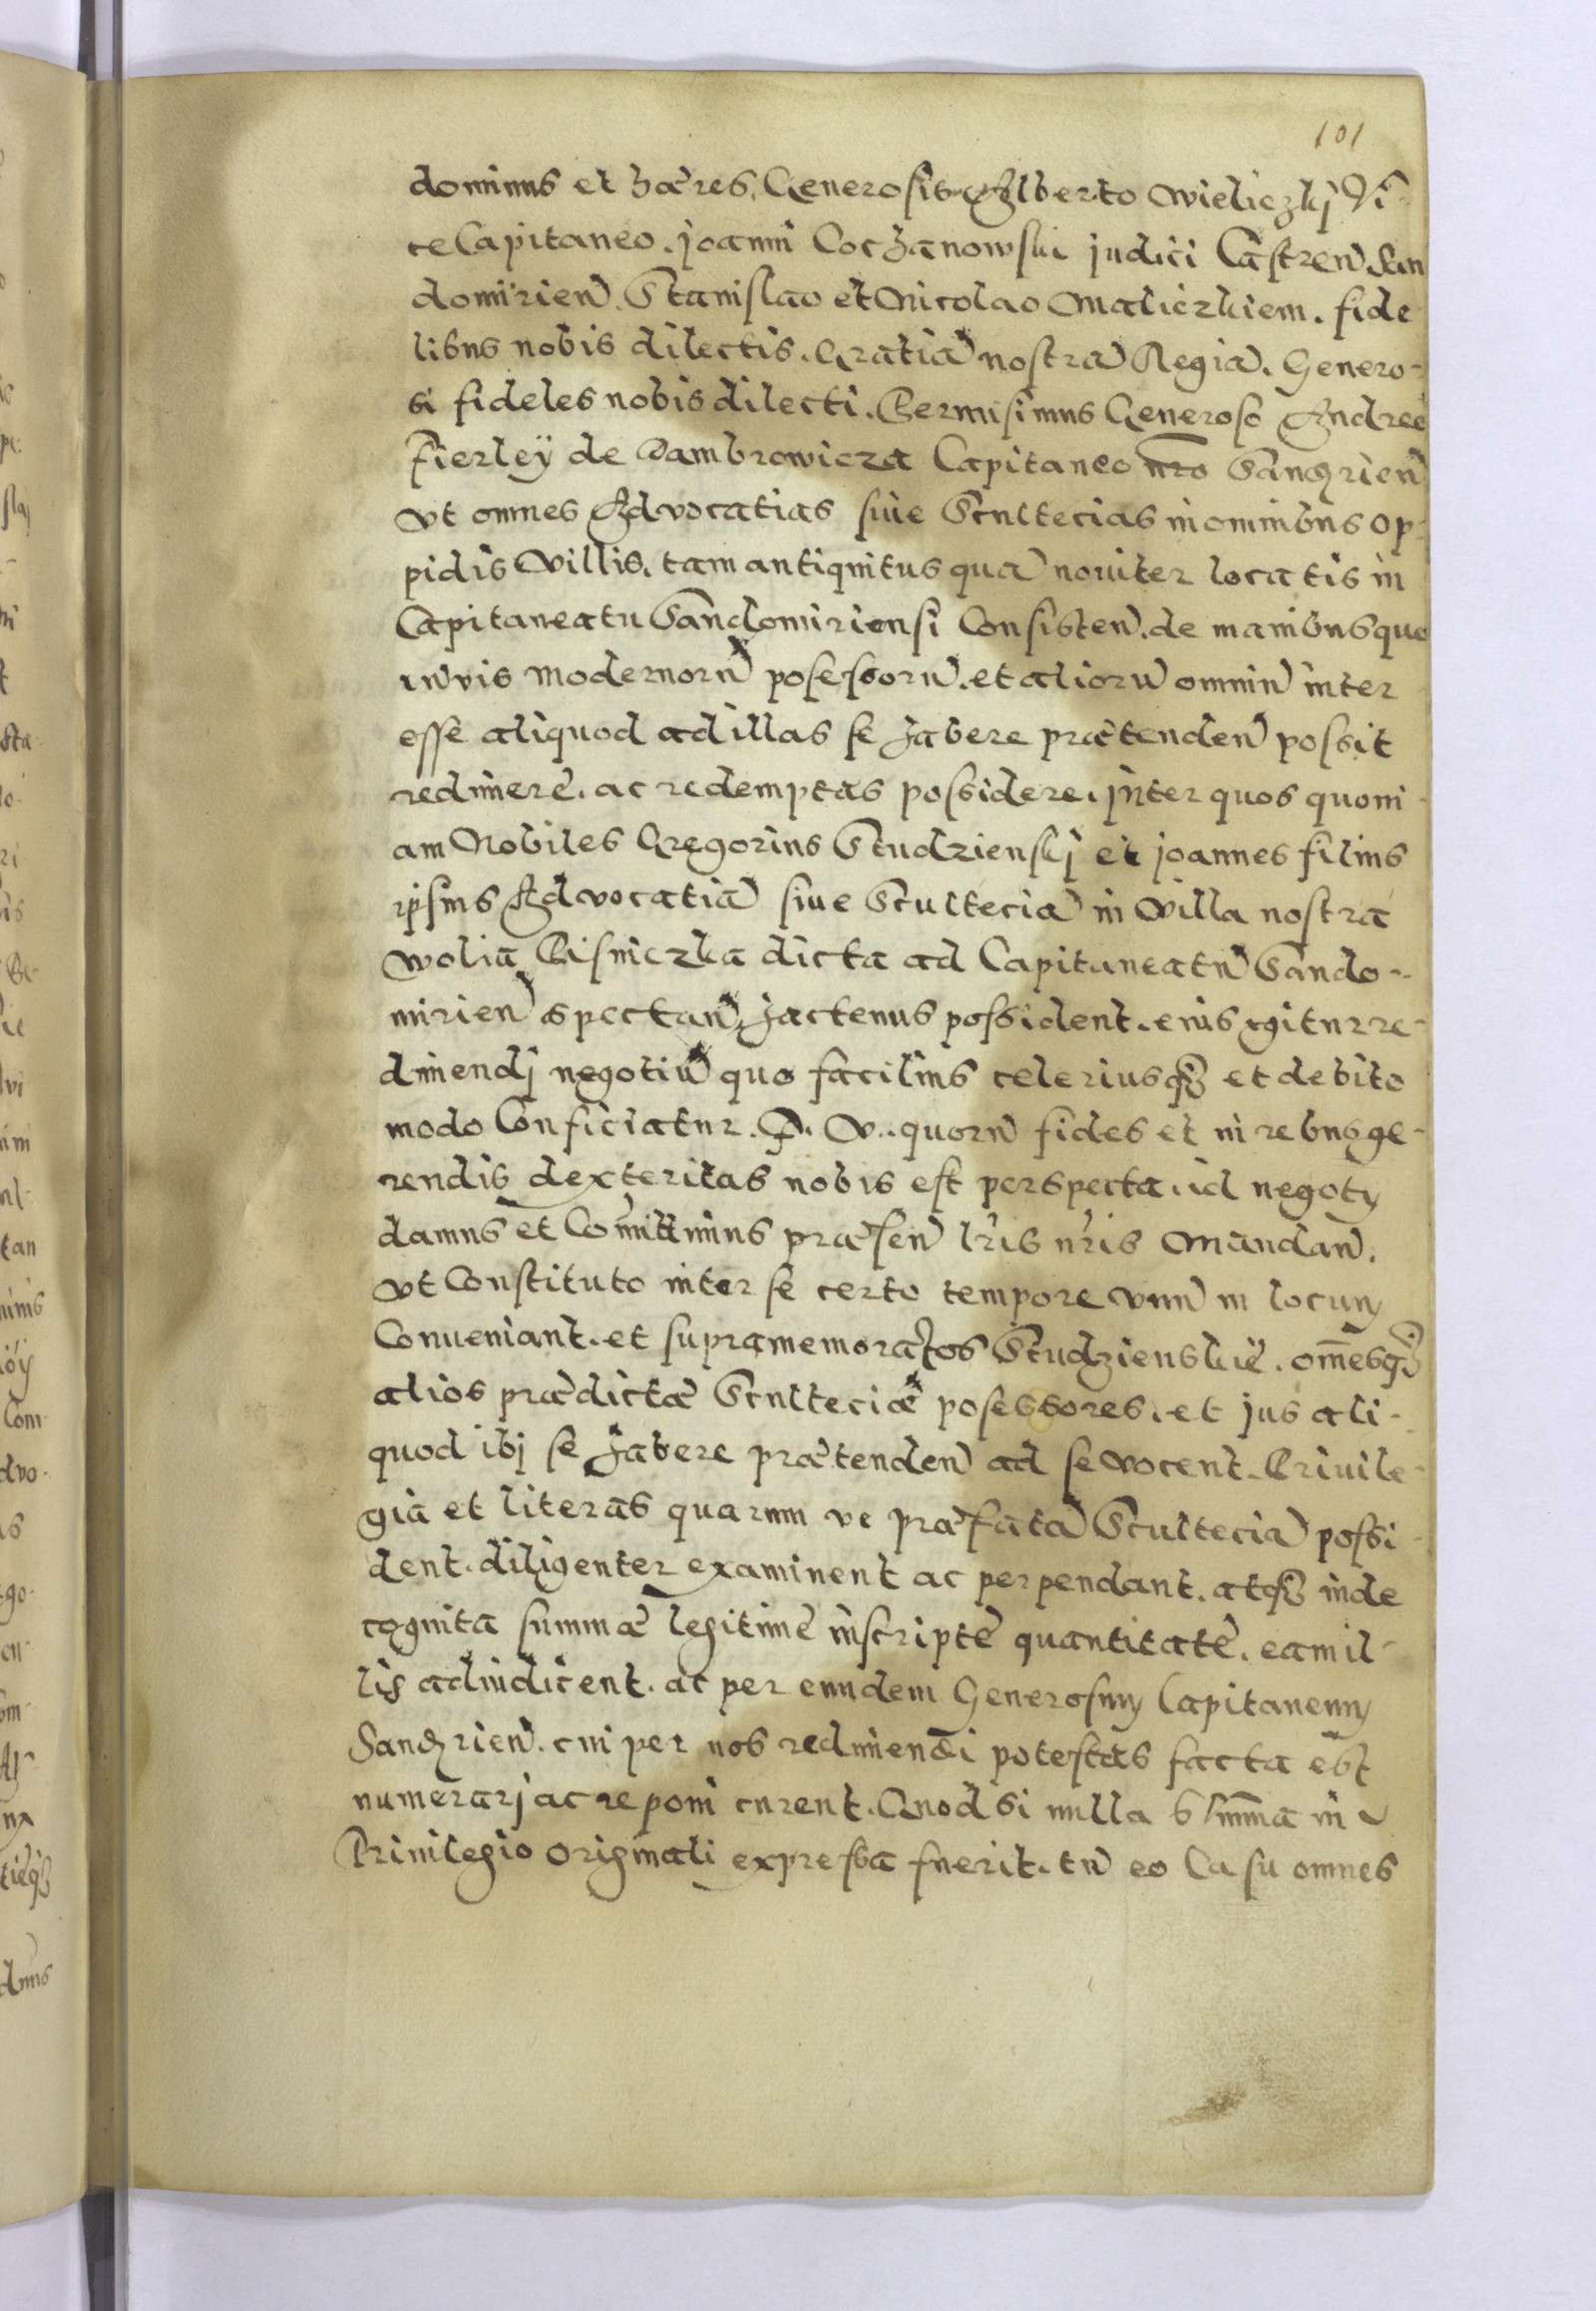 101
dominus et hæres. Generosis Alberto Wieliczkj Vi-
ceCapitaneo. joanni Cochanowski judici Castren̄ San
domirien̄. Stanislao et Nicolao Maliczkiem. fide
libus nobis dilectis. Gratiā nostrā Regiā. Genero-
si fideles nobis dilecti. Permisimus Generoso Andreę
Fierleÿ de Dambrowicza Capitaneo nr̄o Sandrien̄
Vt omnes Advocatias siue Scultecias in omnibus op-
pidis Villis. tam antiquitus quā nouiter locatis in
Capitaneatu Sandomiriensi Consisten̄. de manibus quo
rūvis modernorū posessorū. et aliorū omniū inter
esse aliquod ad illas se habere prætenden̄ possit
redimere. ac redemptas possidere. jnter quos quoni-
am Nobiles Gregorius Studzienskj et joannes filius
ipsius Advocatiā siue Sculteciā in Villa nostra
Wolia Pisniczka dicta ad Capitaneatū Sando-
mirien̄ spectan̄, hactenus possident. eius igitur re-
dimendj negotiū quo facilius celeriusq et debito
modo Conficiatur. F. V. quorū fides et in rebus ge-
rendis dexteritas nobis est perspecta. id negoty
damus et Com̄ittimus præsen̄ lr̄is nr̄is Mandan̄.
Vt Constituto inter se certo tempore vnū in locum
Conueniant. et supramemoratos Studzienskie. om̄esq
alios prædictæ Sculteciæ posessores. et jus ali-
quod ibj se habere prætenden̄ ad se vocent. Priuile-
gia et literas quarum ve præfatā Scultecia possi-
dent. diligenter examinent ac perpendant. atq inde
cognita summæ legitime inscriptę quantitatē. eam il-
lis adiudicent. ac per eundem Generosum Capitaneum
Sandrien̄. cui per nos redimendi potestas facta est
numerarj ac reponi curent. Quod si nulla sum̄a in
Priuilegio originali expressa fuerit. tū eo Casu omnes